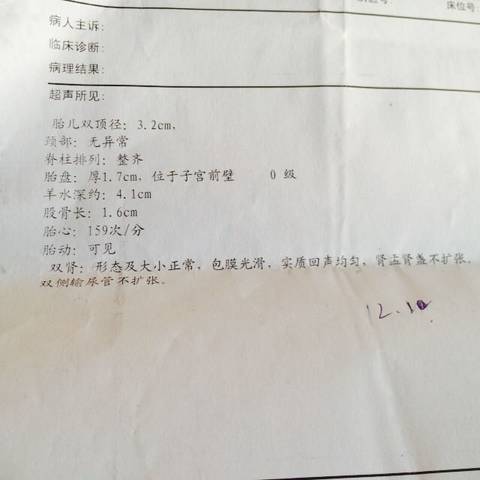 床位号:
病人主诉:
临床诊断:
病理结果:
超声所见:
胎儿双顶径: 3.2cm,
颈部: 无异常
脊柱排列: 整齐
胎盘: 厚1.7cm, 位于子宫前壁 0 级
羊水深约: 4.1cm
股骨长: 1.6cm
胎心: 159次/分
胎动: 可见
双肾: 形态及大小正常, 包膜光滑, 实质回声均匀, 肾盂肾盏不扩张。
双侧输尿管不扩张。
12.10